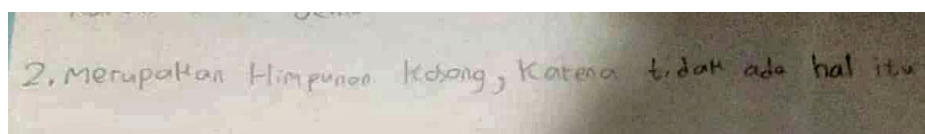 2. Merupakan Himpunan Kosong, Karena tidak ada hal itu